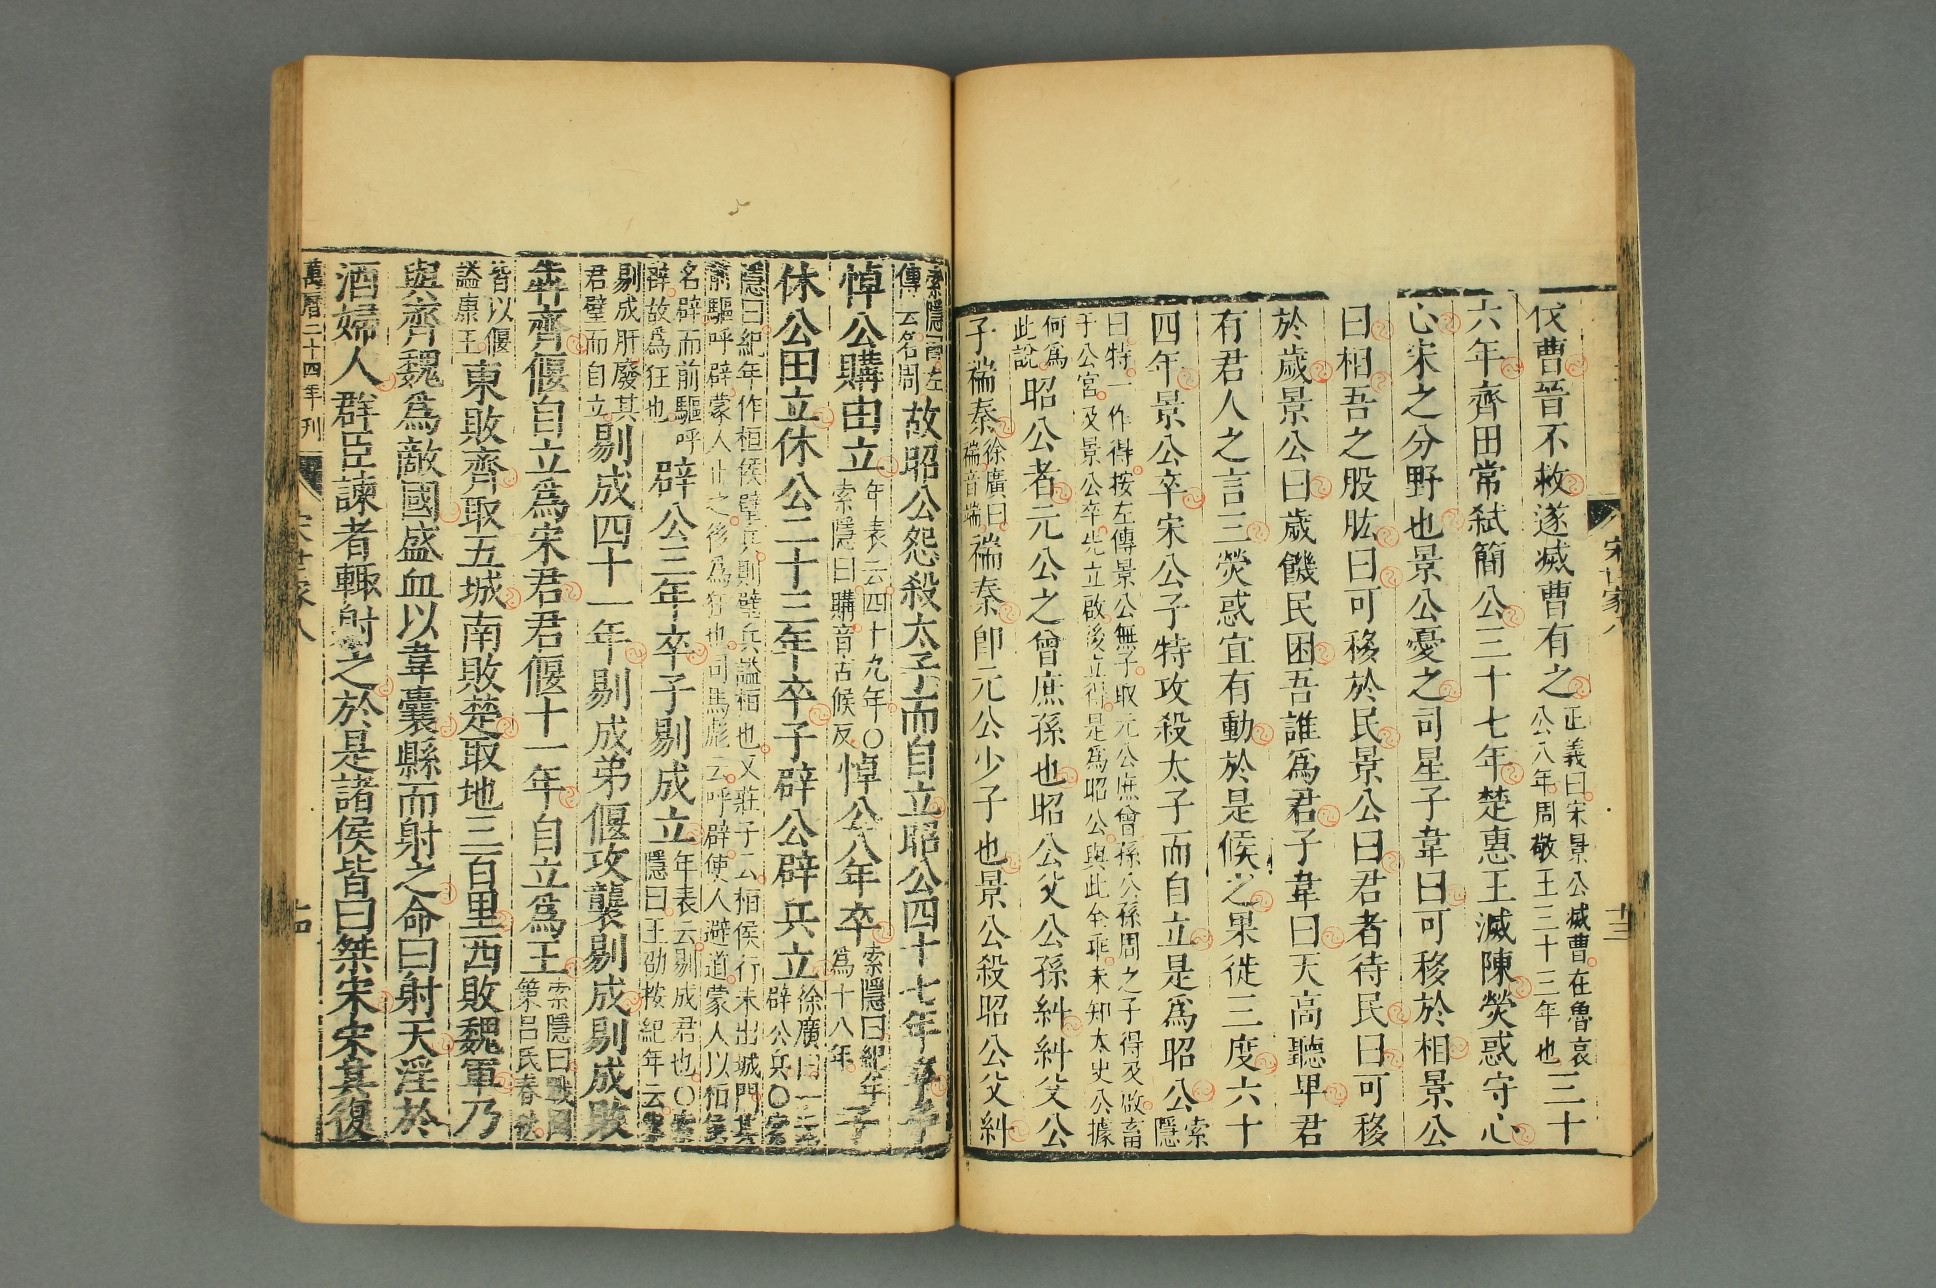 宋世家八
十三
伐曹晉不救遂滅曹有之正義曰宋景公滅曹在魯哀公八年周敬王三十三年也三十
六年齊田常弑簡公三十七年楚惠王滅陳熒惑守心
心宋之分野也景公憂之司星子韋曰可移於相景公
曰相吾之股肱曰可移於民景公曰君者待民曰可移
於歲景公曰歲饑民困吾誰爲君子韋曰天高聽卑君
有君人之言三熒惑宜有動於是候之果徙三度六十
四年景公卒宋公子特攻殺太子而自立是爲昭公索隱
曰特一作得按左傳景公無子取元公庶曾孫公孫周之子得及啟畜
于公宮及景公卒先立啟後立得是爲昭公與此全乖未知太史公據
何爲此說昭公者元公之曾庶孫也昭公父公孫糾糾父公
子褍秦徐廣曰褍音端褍秦即元公少子也景公殺昭公父糾
索隱左傳云名周故昭公怨殺太子而自立昭公四十七年卒子
悼公購由立年表云四十九年○索隱曰購音古候反悼公八年卒索隱曰紀年爲十八年子
休公田立休公二十三年卒子辟公辟兵立徐廣曰一云辟公兵○索
隱曰紀年作桓侯璧兵則璧兵謚桓也又莊子云桓侯行未出城門其
前驅呼辟蒙人止之後爲狂也司馬彪云呼辟使人避道蒙人以桓侯
名辟而前驅呼辟故爲狂也辟公三年卒子剔成立年表云剔成君也○索隱曰王劭按紀年云
剔成肝廢其君璧而自立剔成四十一年剔成弟偃攻襲剔成剔成敗
犇齊偃自立爲宋君君偃十一年自立爲王索隱曰戰國策呂氏春秋
皆以偃謚康王東敗齊取五城南敗楚取地三百里西敗魏軍乃
與齊魏爲敵國盛血以韋囊縣而射之命曰射天淫於
酒婦人群臣諫者輒射之於是諸侯皆曰桀宋宋其復
萬曆二十四年刊
宋世家八
十四